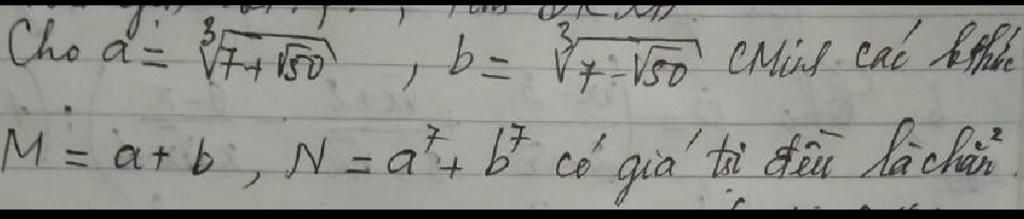 Cho a = ∛(7+√50) , b = ∛(7-√50) CMinh các bthức
M = a + b , N = a⁷ + b⁷ có giá trị đều là chẵn